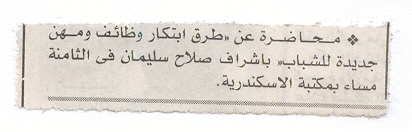 ❖ محاضرة عن «طرق ابتكار وظائف ومهن
جديدة للشباب» باشراف صلاح سليمان فى الثامنة
مساء بمكتبة الاسكندرية.